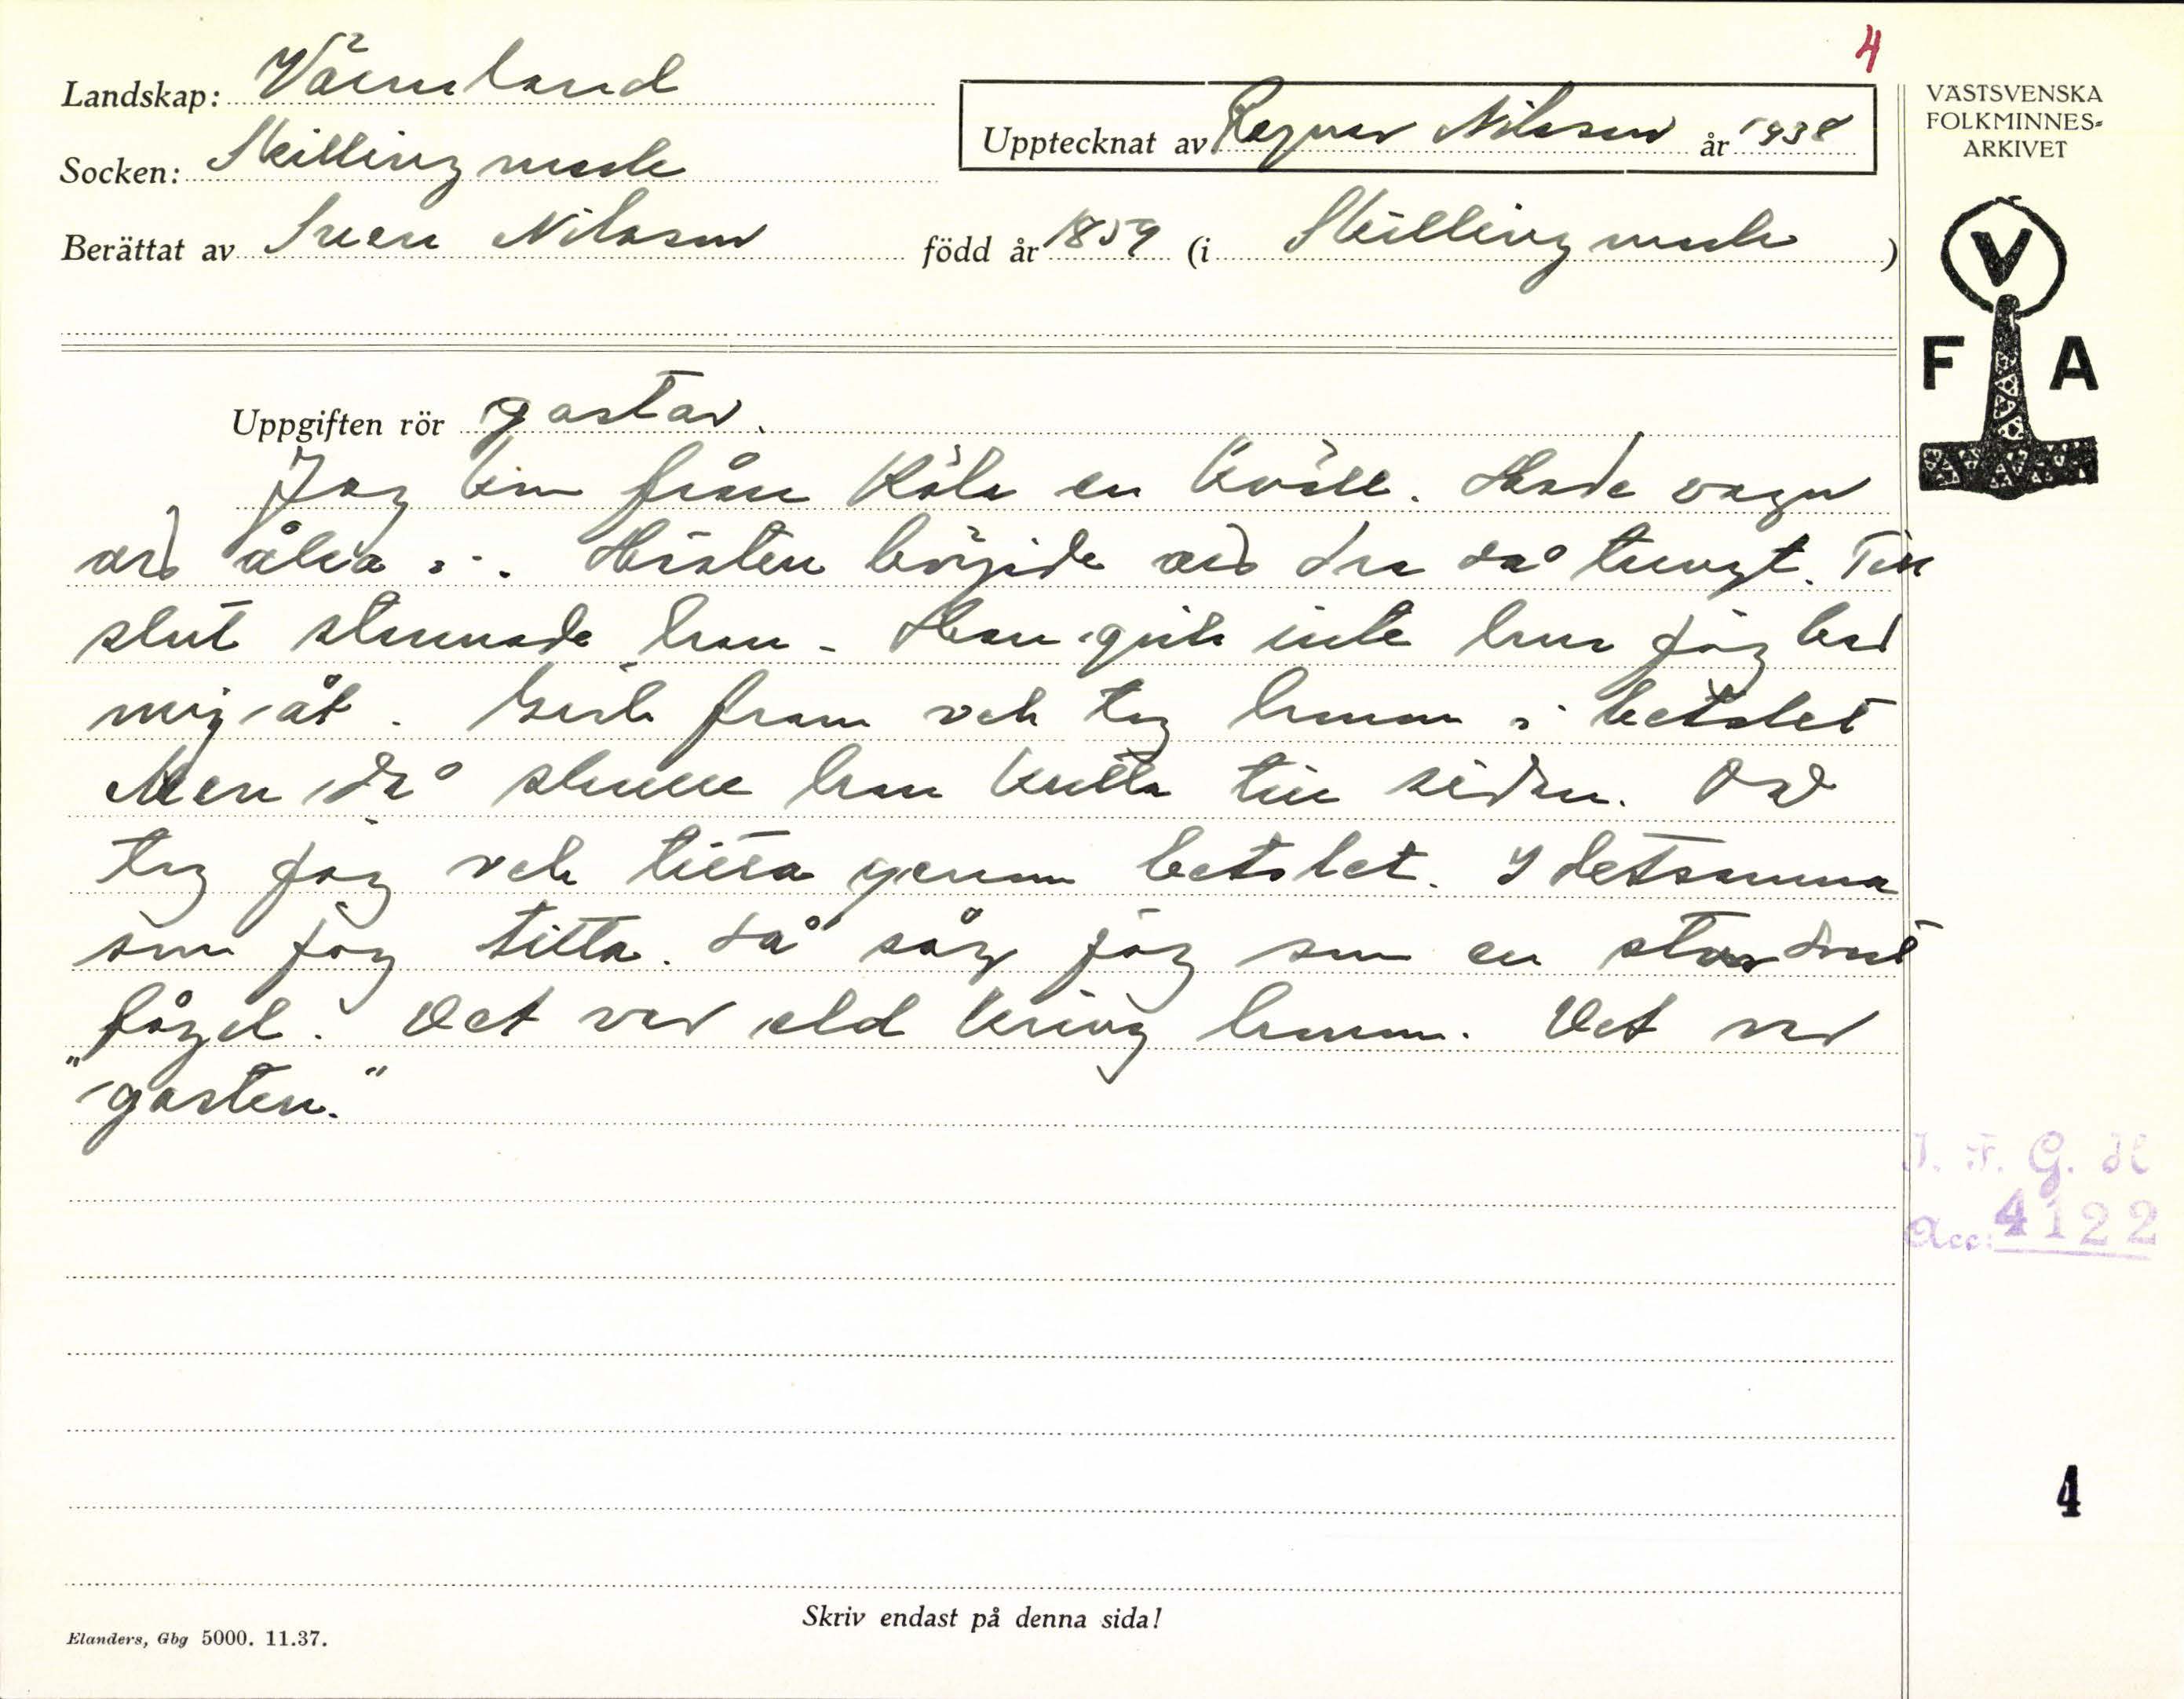 4
Landskap: Värmland
Upptecknat av Ragnar Nilsson år 1938
Socken: Skillingmark
Berättat av Sven Nilsson född år 1859 (i Skillingmark)
VÄSTSVENSKA
FOLKMINNES-
ARKIVET
V
F A
Uppgiften rör gastar.
Jag kom från Köla en kväll. Hade vagn
att åka i. Hästen började att dra så tungt. Till
slut stannade han. Han gick inte hur jag bar
mig åt. Gick fram och tog honom i betslet
Men då skulle han kulla till sidan. Då
tog jag och titta genom betslet. I detsamma
som jag titta. Då såg jag som en stor
fågel. Det var eld kring honom. Det var
"gasten."
I. F. G. H
Acc: 4122
4
Skriv endast på denna sida!
Elanders, Gbg 5000. 11.37.